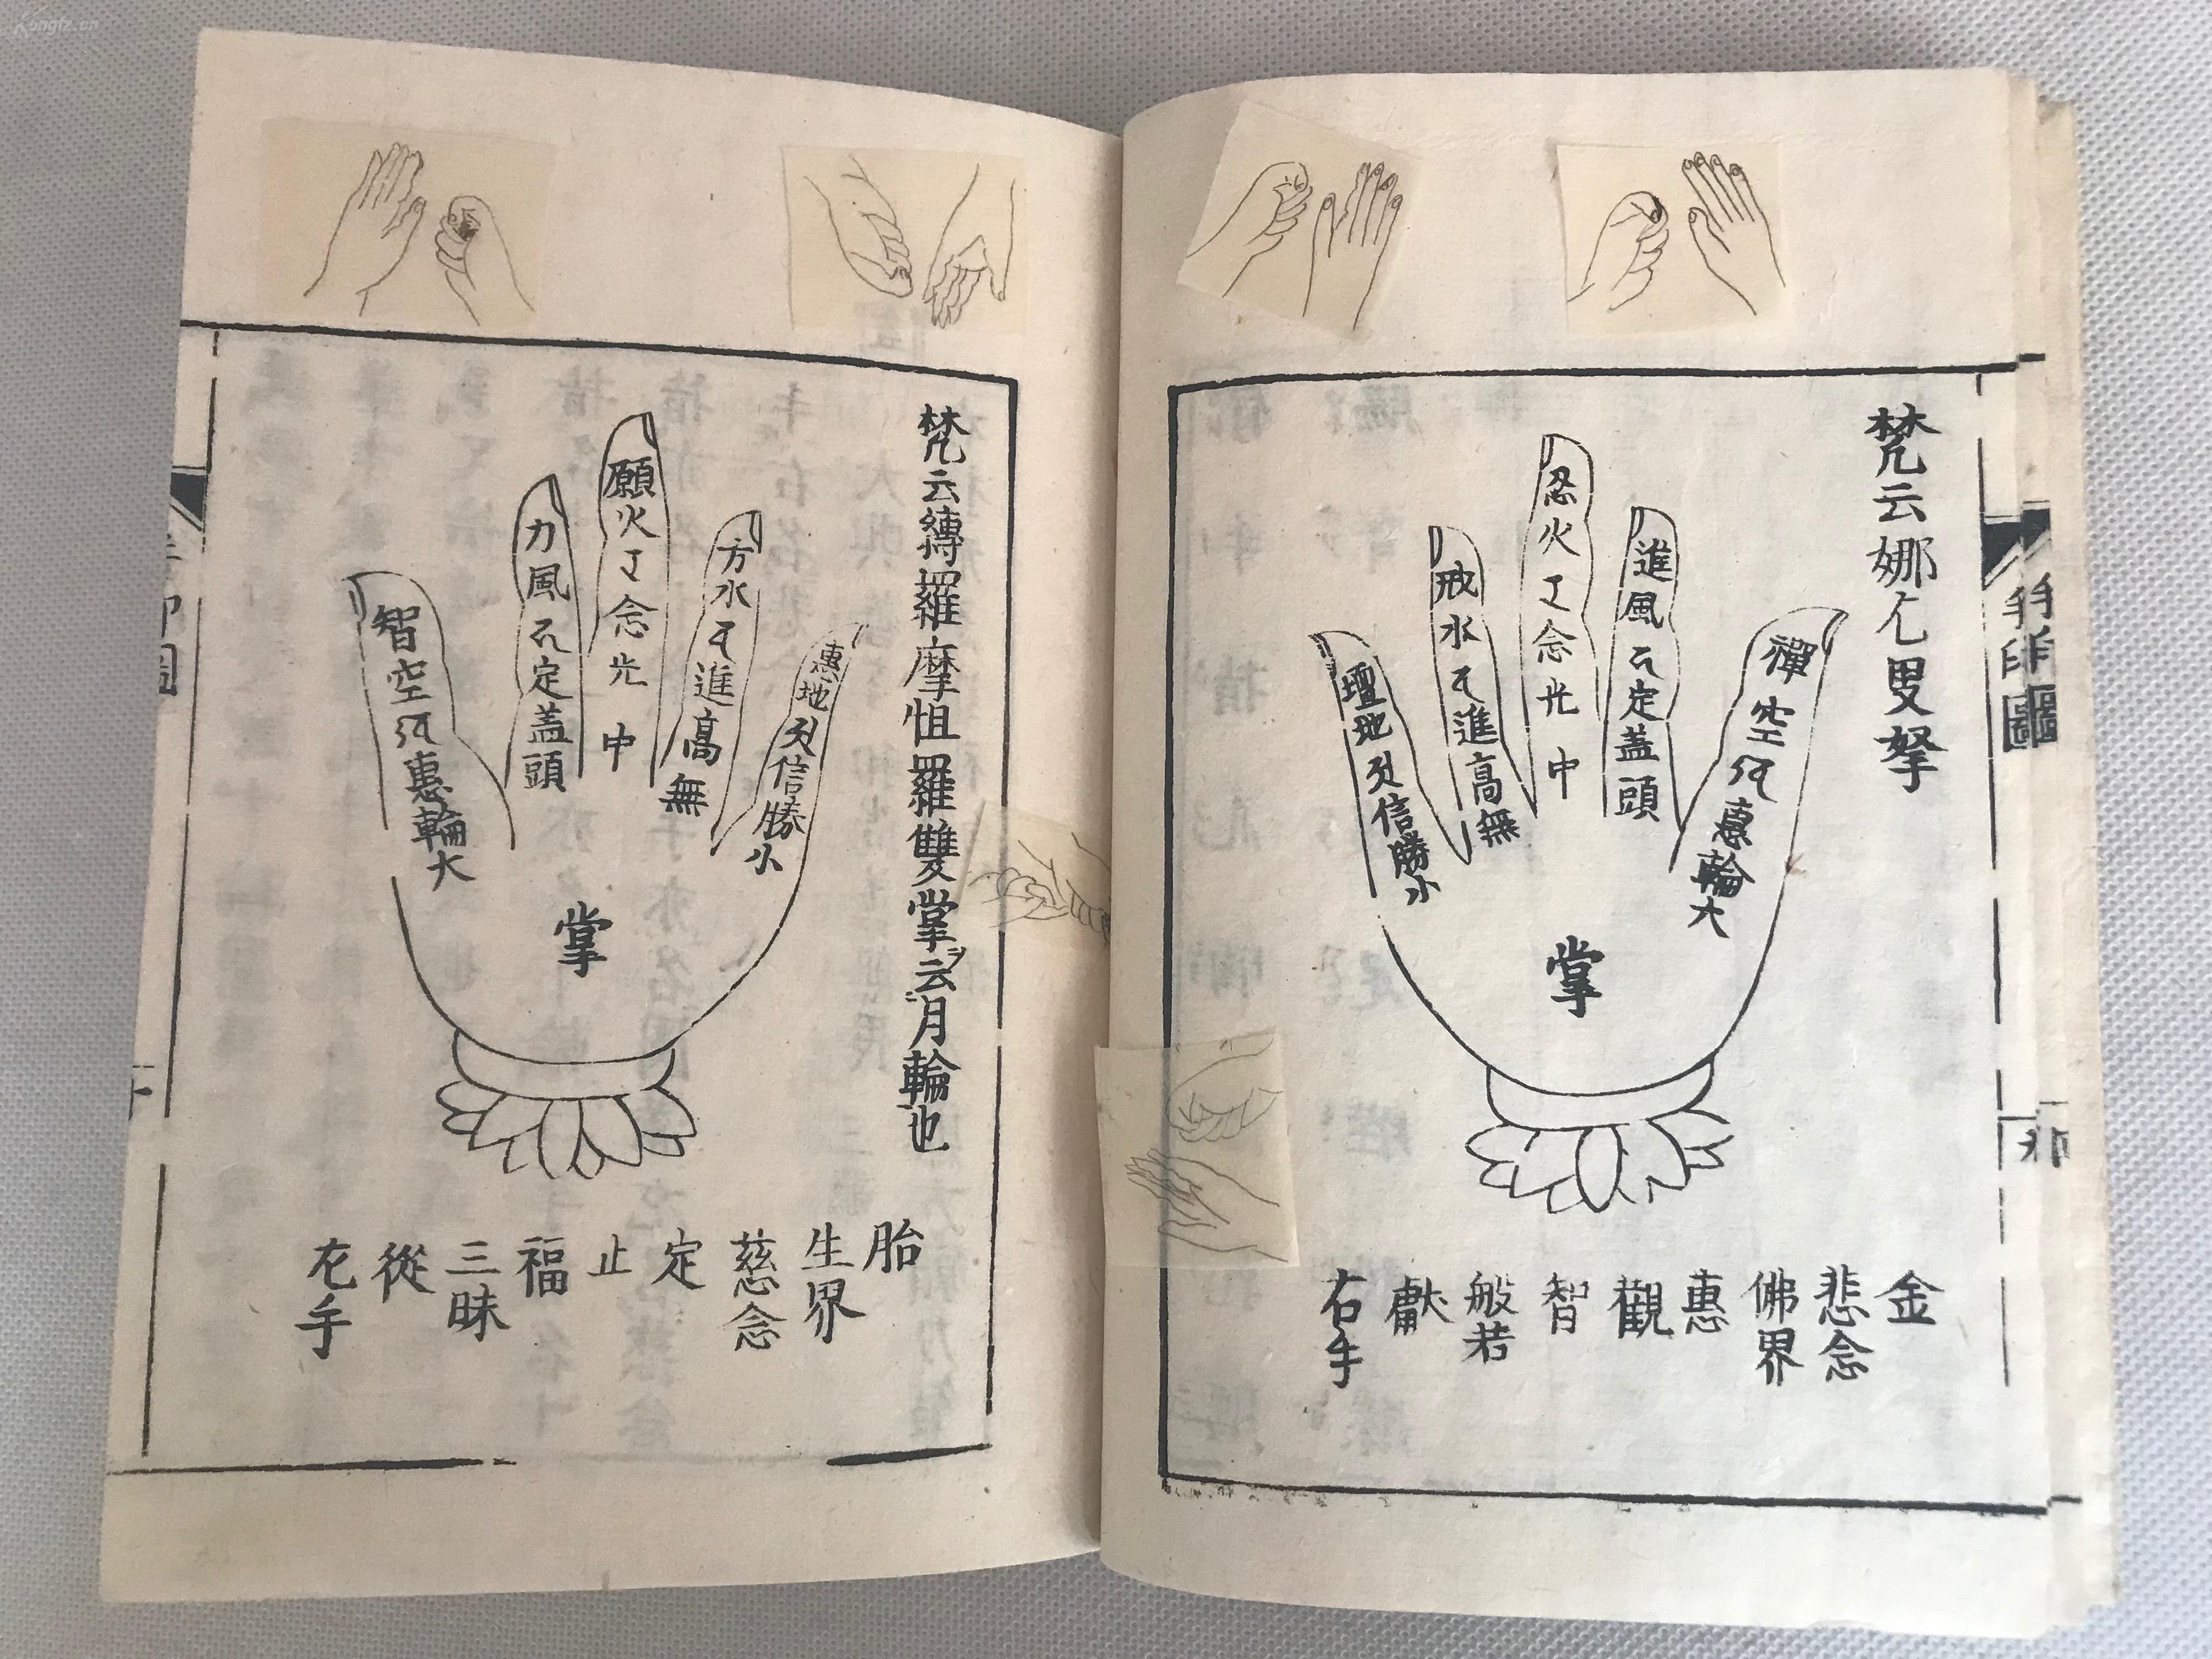 梵云娜乞叟拏
禪空惠輪大
進風定蓋頭
忍火念光中
戒水進高無
壇地信勝小
掌
金
悲念
佛界
惠
觀
智
般若
獻
右手
手印圖
梵云縛羅摩怛羅雙掌云月輪也
惠地信勝小
方水進高無
願火念光中
力風定蓋頭
智空惠輪大
掌
胎
生界
慈念
定
止
福
三昧
從
左手
Kongfz.cn